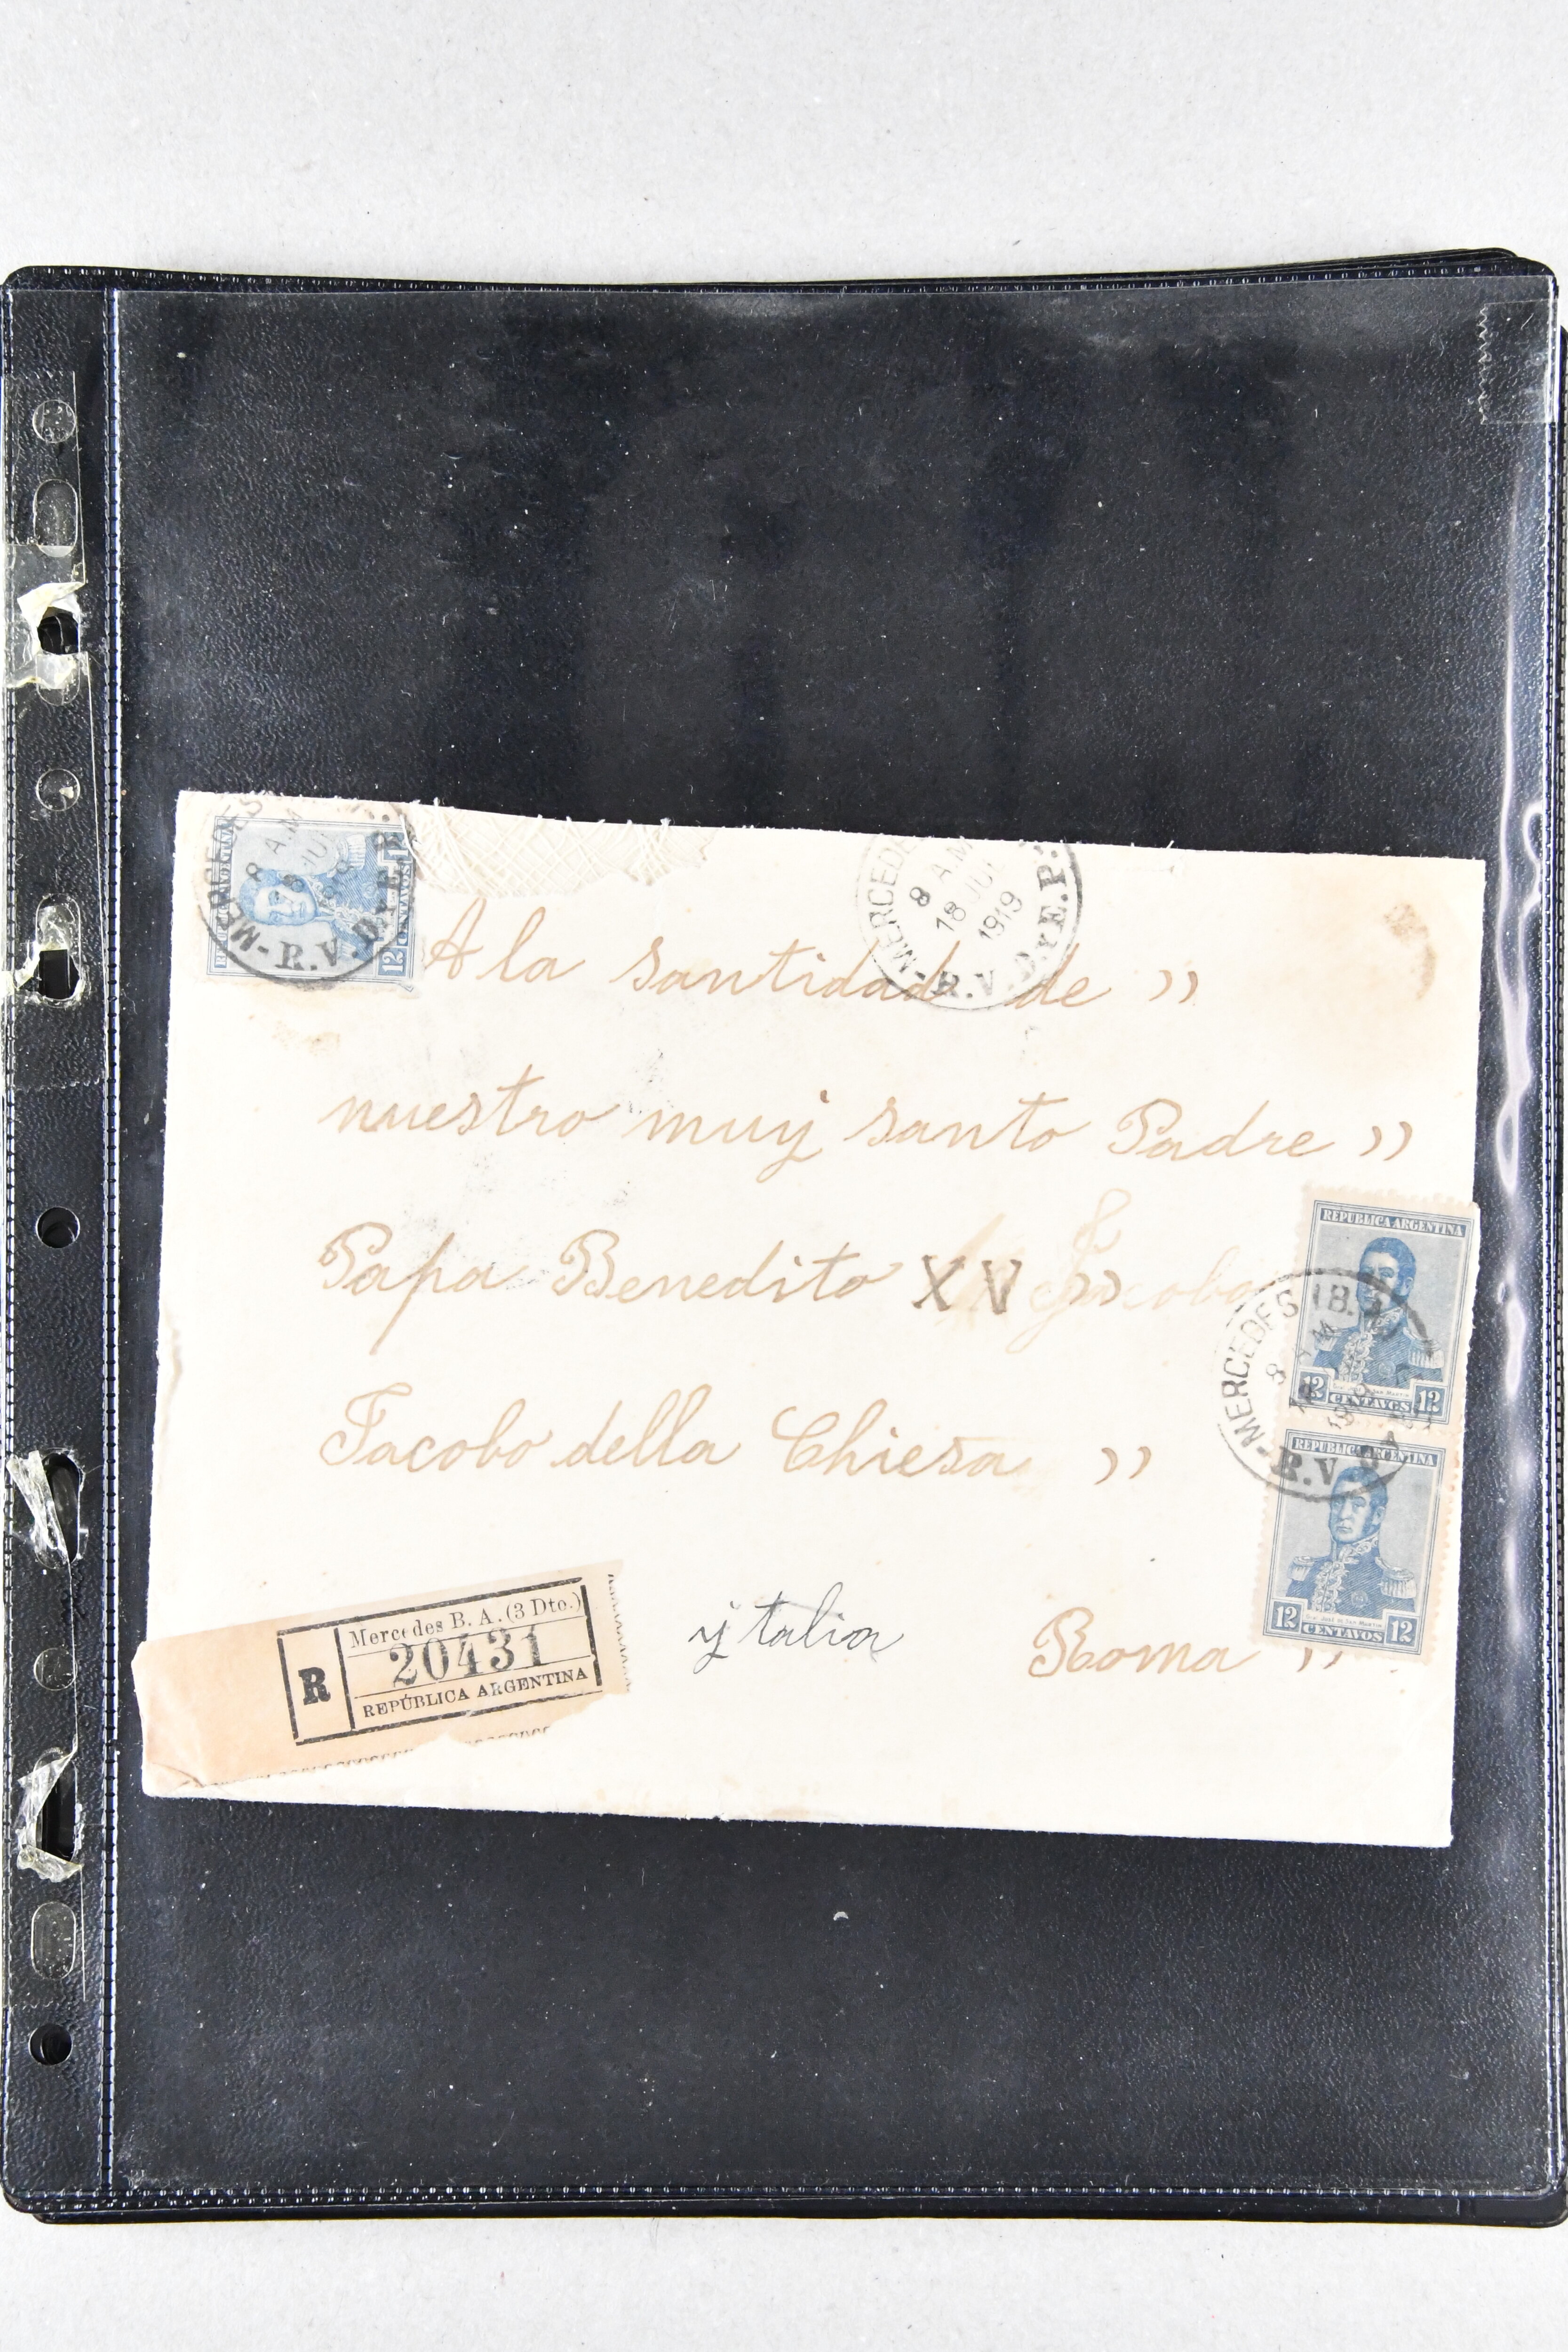 A la santidad de ))
nuestro muy santo Padre ))
Papa Benedito XV )) Jacobo
Jacobo della Chiesa ))
ytalia Roma ))
MERCEDES
8 A.M
18 JUL
1919
R.V.D.yE.P.
MERCEDES
8 A.M
R.V.D.yE.
12 CENTAVOS
REPUBLICA ARGENTINA
12 CENTAVOS 12
MERCEDES (B.
8
R.V.
REPUBLICA ARGENTINA
12 CENTAVOS 12
R
Mercedes B. A. (3 Dto.)
20431
REPÚBLICA ARGENTINA